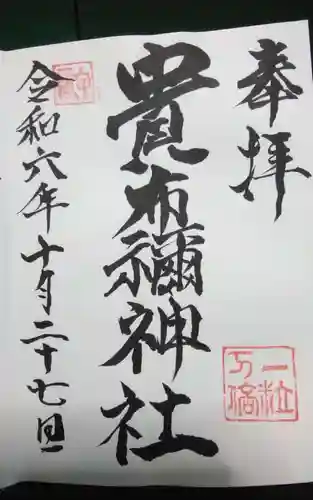 奉拝
貴布禰神社
令和六年十月二十七日
一粒
万倍